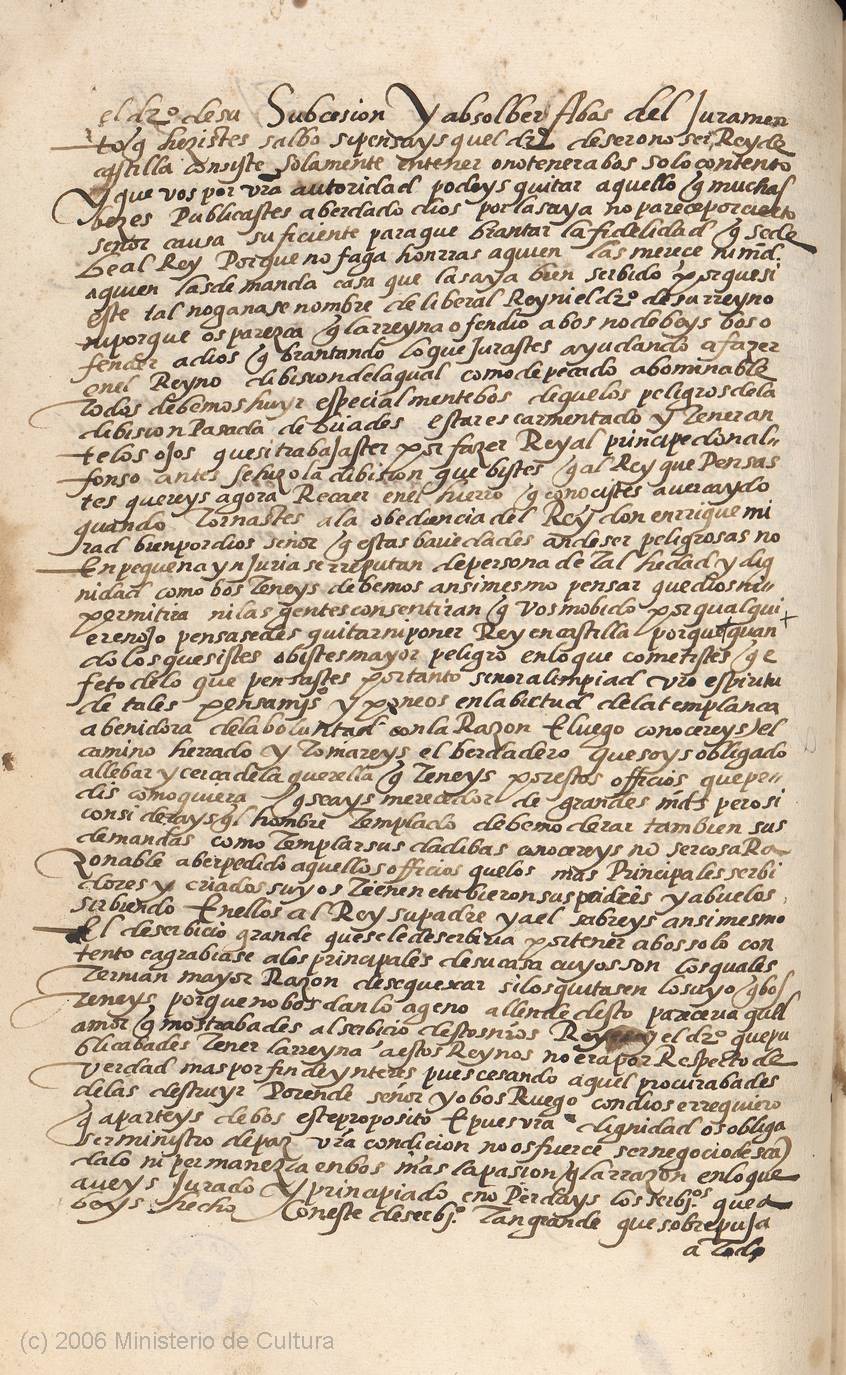 el drº de su Subcesion Y absolber Abos del Juramen
to q hezistes salbo si pensays quel drº de ser o no ser Rey de
castilla consiste solamente en tener o no tener a bos solo contento
Y que vos por vra autoridad podeys quitar aquello q muchas
bezes Publicastes aber dado dios por la suya no parece por cierto
señor causa suficiente para que brantar la fidelidad q se de
be al Rey Porque no faga honrras a quien las merece ni md
a quien las demanda casa que la aya bien serbido porque si
este tal no ganase nombre de liberal Rey ni el drº de su rreyno
ni porque os parezca q la rreyna ofendio a bos no debeys bos o
fender a dios q brantando lo que Jurastes ayudando a fazer
en el Reyno dibision de la qual como de pecado abominable
todos debemos huyr especialmente bos de que los peligros de la
dibision Pasada debiades estar escarmentado y tener an
te los ojos que si trabajastes por fazer Rey al principe don al
fonso antes se hizo la dibision que bistes q al Rey que Pensas
tes quereys agora Recaer en el hierro q conocistes aver caydo
quando tornastes a la obediencia del Rey don enrrique mi
rad bien por dios señor q estas bariedades an de ser peligrosas no
En pequena ynJuria se rreputan de persona de tal hedad y dig
nidad como bos teneys debemos ansimesmo pensar que dios ni
permitira ni las gentes consentiran q vos mobido por qualqui
er enojo pensasedes quitar ni poner Rey en castilla porque quan
do lo quesistes obistes mayor peligro en lo que cometistes q e
feto de lo que pensastes por tanto señor alimpiad vro espiritu
de tales pensamjºs y poneos en la birtud de la templanca
abenidora de la boluntad con la Razon E luego conocereys el
camino herrado y tomareys el berdadero que soys obligado
a llebar y cerca de la querella q teneys por estos officios que pe
dis como quiera q seays merecedor de grandes mds pero si
considerays ql hombre templado debe moderar tambien sus
demandas como templar sus dadibas conocereys no ser cosa Ra
zonable aber pedido aquellos officios que los mas Principales serbi
dores y criados suyos tienen e tubieron sus padres y abuelos
sirbiendo En ellos al Rey su padre y a el sabreys ansimesmo
El deserbicio grande que se le deserbiria por tener a bos solo con
tento e agrabiase a los principales de su casa cuyos son los quales
ternian mayor Razon de se quexar si los quitasen lo suyo q bos
teneys porque no bos dan lo ageno allende desto pareceria quel
amor q mostrabades al serbicio destos nros Reyes y el drº que pu
blicabades tener la rreyna a estos Reynos no era por Respecto de
verdad mas por fin de ynteres pues cesando aquel procurabades
de las destruyr Por ende señor yo bos Ruego con dios e rrequiero
q aparteys de bos este proposito E pues vra dignidad os obliga
ser ministro de paz vra condicion no os fuerce ser negocio de escan
dalo ni permanezca en bos mas la pasion q la rrazon en lo que
aveys Jurado Y principiado e no Perdays los serbjºs que a
beys hecho Con este deserbjº tan grande que sobrepuja
a todo
(c) 2006 Ministerio de Cultura